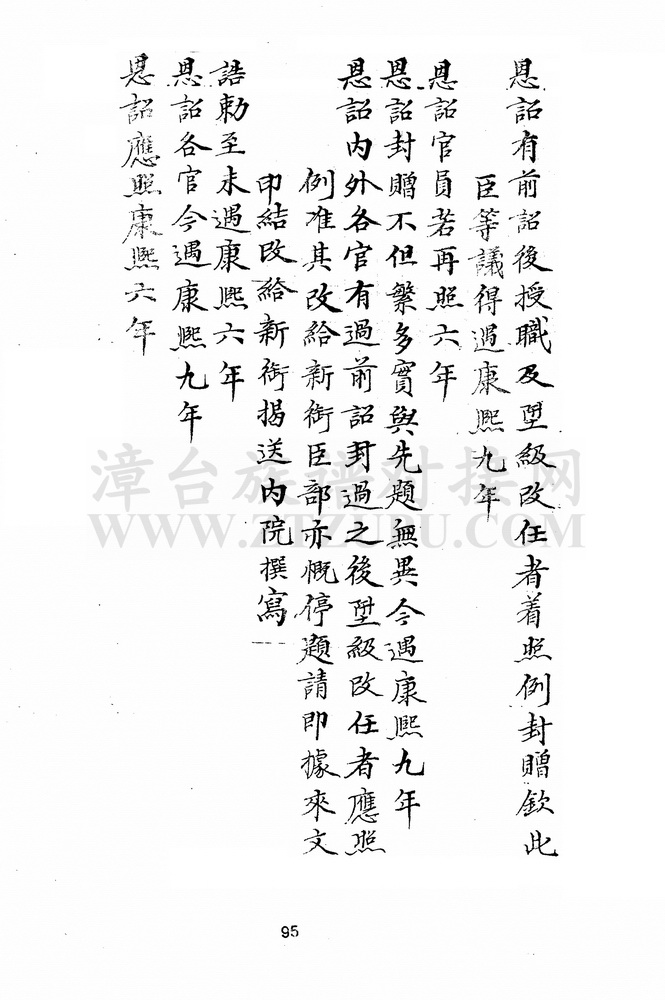 恩詔有前詔後授職及陞級改任者着照例封贈欽此
臣等議得遇康熙九年
恩詔官員若再照六年
恩詔封贈不但繁多實與先題無異今遇康熙九年
恩詔內外各官有過前詔封過之後陞級改任者應照
例准其改給新銜臣部亦概停題請即據來文
印結改給新銜揭送內院撰寫
誥勅至未遇康熙六年
恩詔各官今遇康熙九年
恩詔應照康熙六年
漳台族谱对接网
WWW.ZTZUPU.COM
95